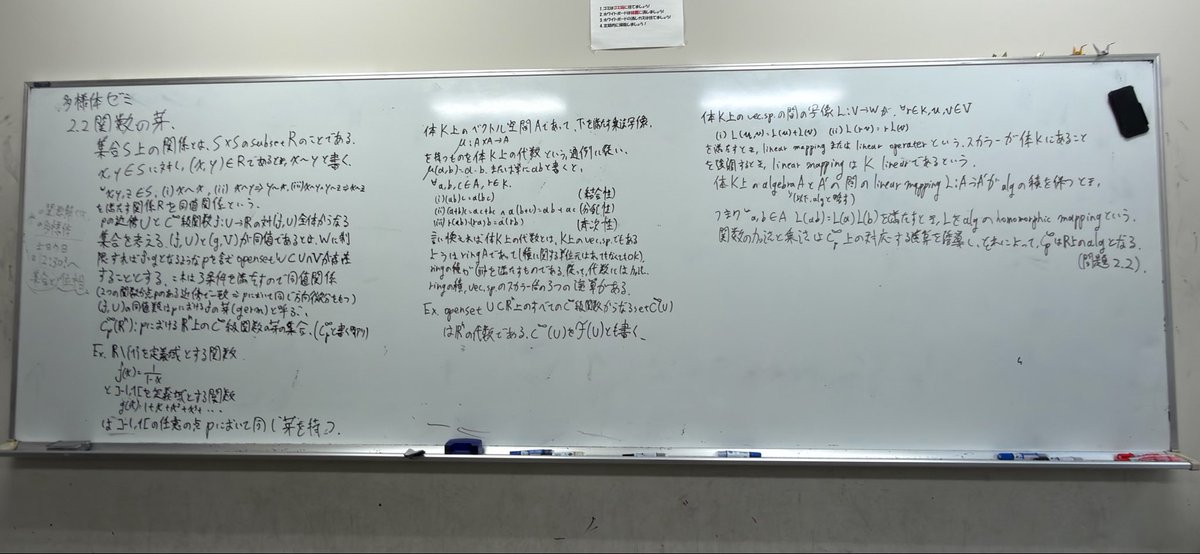 1. ゴミはゴミ箱に捨てましょう!
2. ホワイトボードは綺麗に消しましょう!
4. 定期的に掃除しましょう!
多様体ゼミ
2.2 関数の芽.
集合S上の関係とは, S×Sのsubset Rのことである.
x, y∈Sに対し, (x, y)∈Rであるとき, x〜yと書く.
∀x,y,z∈S, (i) x〜x, (ii) x〜y⇒y〜x, (iii) x〜y∧y〜z⇒x〜z
を満たす関係Rを同値関係という.
pの近傍UとC^∞級関数f:U→Rの対(f,U)全体からなる
集合を考える. (f,U)と(g,V)が同値であるとは, Wに制
限すればf=gとなるようなpを含むopenset W⊂U∩Vが存在
することとする. これは3条件を満たすので同値関係
(2つの関数が点pのある近傍で一致⇒pにおいて同じ方向微分をもつ)
(f,U)の同値類はpにおけるfの芽(germ)と呼ぶ.
C_p^∞(R^n): pにおけるR^n上のC^∞級関数の芽の集合. (C_p^∞と書く)
Ex. R\{1}を定義域とする関数
f(x)=1/(1-x)
と]-1,1[を定義域とする関数
g(x)=1+x+x²+x³+…
は]-1,1[の任意の点pにおいて同じ芽を持つ.
体K上のベクトル空間Aであって, 下を満たす乗法写像,
μ: A×A→A
を持つものを体K上の代数という. 通例に従い,
μ(a,b)=a·b. または単にabと書くと,
∀a,b,c∈A, r∈K.
(i) (ab)c=a(bc) (結合性)
(ii) (a+b)c=ac+bc ∧ a(b+c)=ab+ac (分配性)
(iii) r(ab)=(ra)b=a(rb) (斉次性)
言い換えれば体K上の代数とは, K上のvec.sp.でもある
ようなring Aであって(積に関する単位元はあってもなくてもOK).
ringの積が(iii)を満たすものである. 従って, 代数には加法,
ringの積, vec.sp.のスカラー倍の3つの演算がある.
Ex. openset U⊂R^n上のすべてのC^∞級関数からなるset C^∞(U)
はR上の代数である. C^∞(U)をF(U)とも書く.
体K上のvec.sp.の間の写像L:V→Wが, ∀r∈K, u,v∈V
(i) L(u+v)=L(u)+L(v) (ii) L(rv)=rL(v)
を満たすとき, linear mappingまたはlinear operaterという. スカラーが体Kにあること
を強調するとき, linear mappingはK linearであるという.
体K上のalgebra AとA'の間のlinear mapping L:A→A'がalgの積を保つとき,
(以下, algと略す)
つまり∀a,b∈A L(ab)=L(a)L(b)を満たすとき, Lをalgのhomomorphic mappingという.
関数の加法と乗法はC_p^∞上の対応する演算を誘導し, それによって, C_p^∞はR上のalgとなる.
(問題2.2)